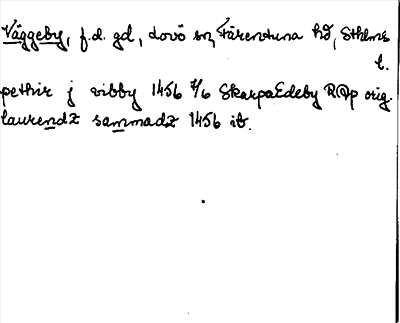 Väggeby, f.d. gd, Lovö sn, Färentuna hd, Sthlms
l.
pethir j vibby 1456 7/6 SkarpaEdeby RAp orig.
laurendz sammadz 1456 ib.